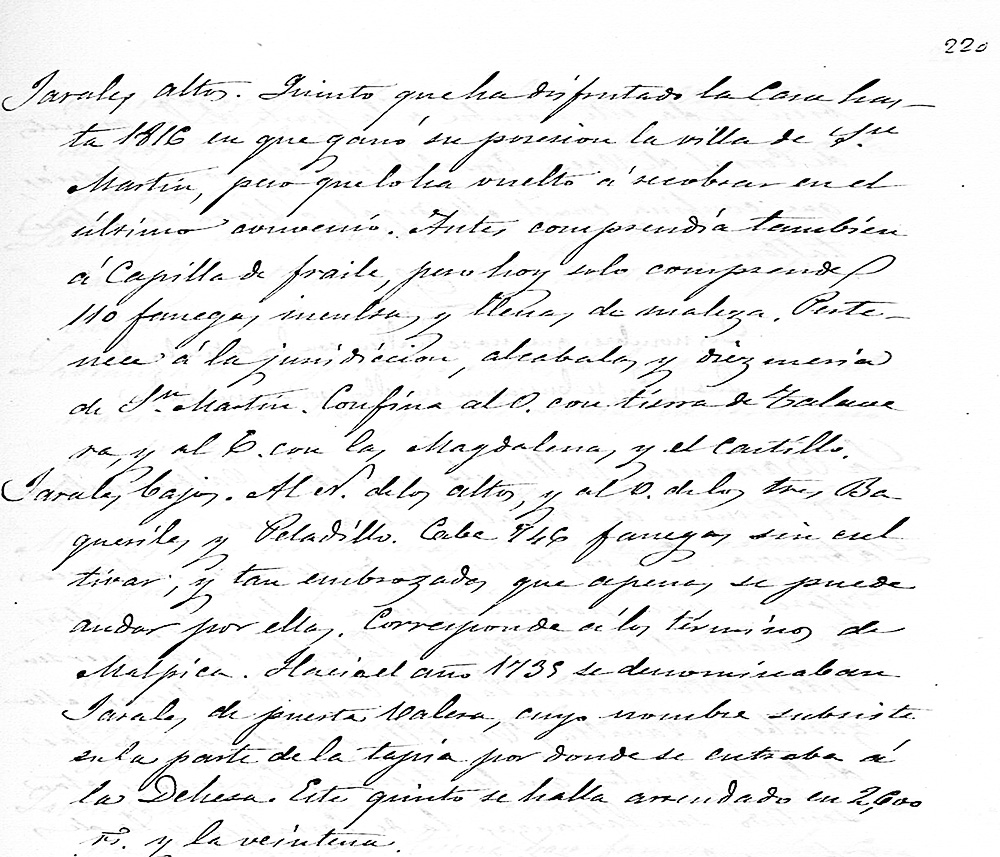 220
Jarales altos. Quinto que ha disfrutado la Casa has-
ta 1816 en que ganó su posesion la villa de Sn
Martín, pero que lo ha vuelto á recobrar en el
último convenio. Antes comprendía tambien
á Capilla de fraile, pero hoy solo comprende
110 fanegas incultas y llenas de maleza. Perte-
nece á la juridiccion, alcabalas y diezmería
de Sn Martín. Confina al O. con tierra de Talave
ra, y al E. con las Magdalenas y el Castillo.
Jarales bajos. Al N. de los altos, y al O. de los tres Ba
queriles y Peladillo. Cabe 846 fanegas sin cul
tivar, y tan embrozadas que apenas se puede
andar por ellas. Corresponde á los términos de
Malpica. Hacia el año 1735 se denominaban
Jarales de puerta Valera, cuyo nombre subsiste
en la parte de la tapia por donde se entraba á
la Dehesa. Este quinto se halla arrendado en 2,600
rs. y la veintena.